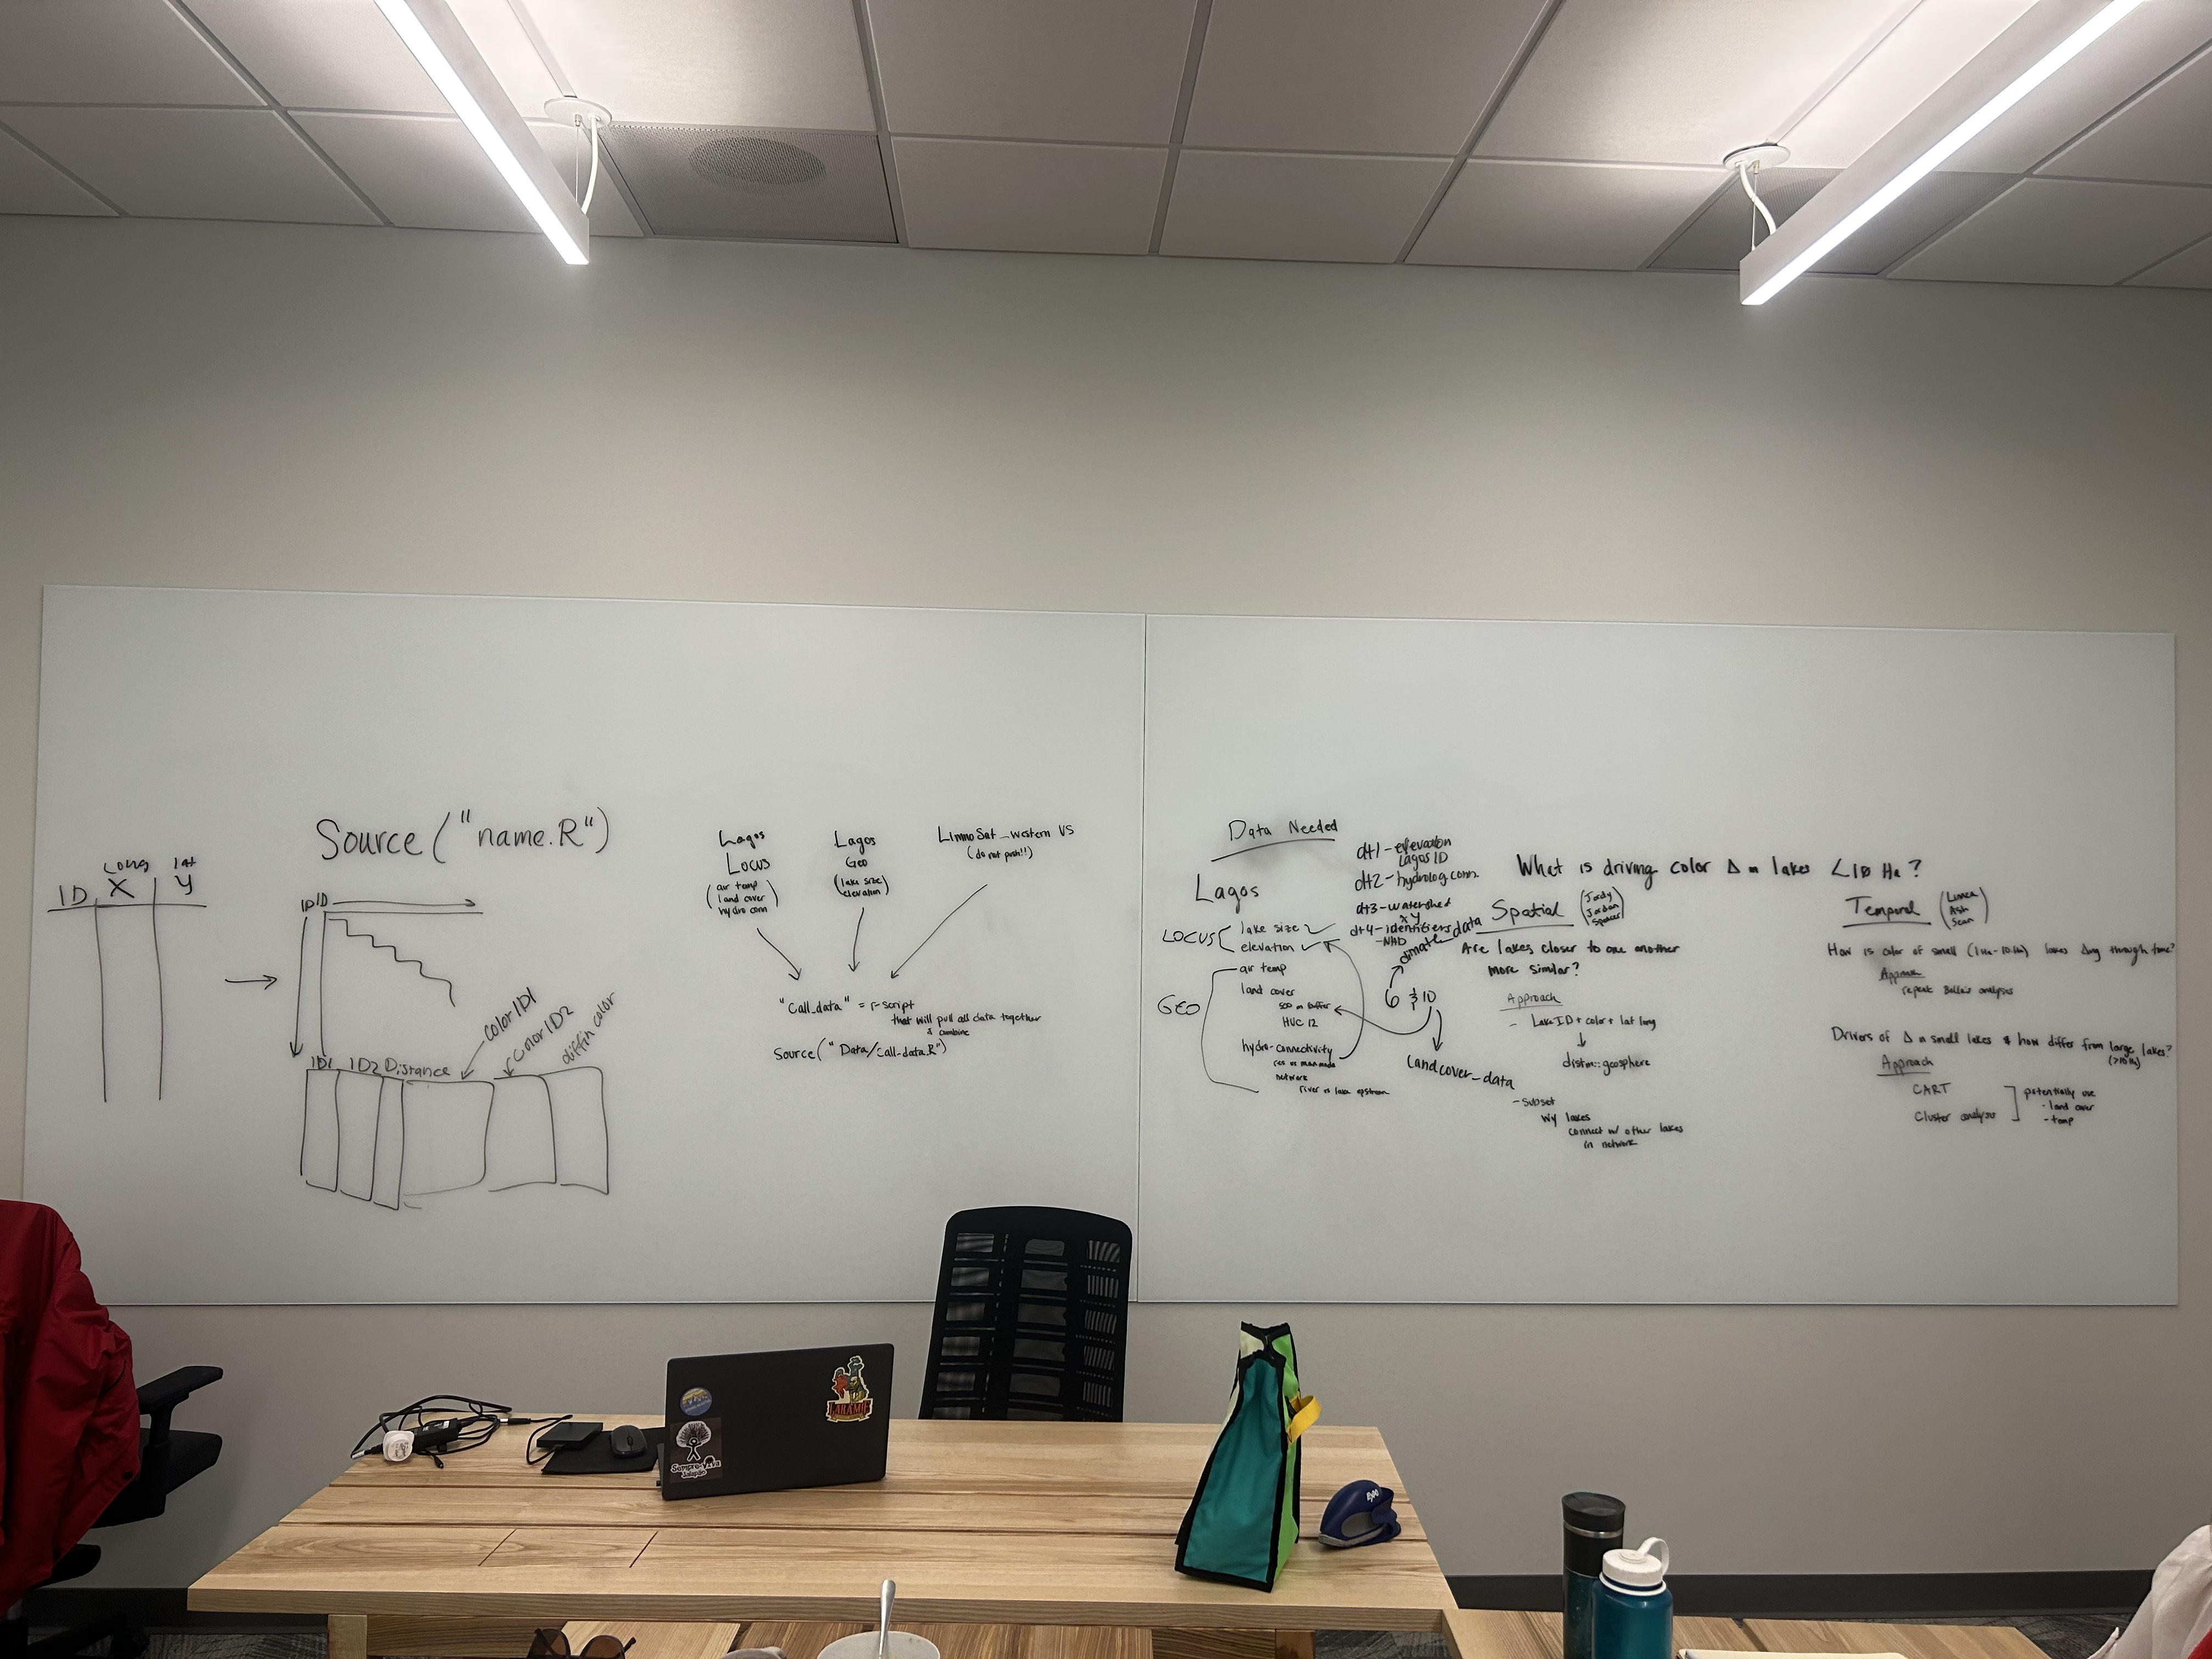 Source("name.R")
Long lat
ID X Y
ID ID
ID1 ID2 Distance
color ID1
color ID2
diff in color
Lagos
Locus
(air temp
land cover
hydro conn)
Lagos
Geo
(lake size
elevation)
LimnoSat_western US
(do not push!!)
"Call_data" = r-script
that will pull all data together
& combine
Source("Data/call-data.R")
Data Needed
Lagos
LOCUS
lake size
elevation
GEO
air temp
land cover
500 m buffer
HUC 12
hydro-connectivity
res vs manmade
network
river vs lake upstream
dt1-elevation
Lagos ID
dt2-hydrolog conn.
dt3-watershed
x y
dt4-identifiers
-NHD
climate data
6 & 10
landcover_data
-subset
WY lakes
connect w/ other lakes
in network
What is driving color Δ in lakes <10 Ha?
Spatial
(Jordy
Jordan
Spencer)
Are lakes closer to one another
more similar?
Approach
- Lake ID + color + lat long
distm::geosphere
Temporal
(Linnea
Ash
Sean)
How is color of small (1Ha-10Ha) lakes Δing through time?
Approach
repeat Bella's analysis
Drivers of Δ in small lakes & how differ from large lakes?
(>10Ha)
Approach
CART
Cluster analysis
potentially use
- land cover
- temp
LARAMIE
Sempre-Viva
Jalapão
EXPO